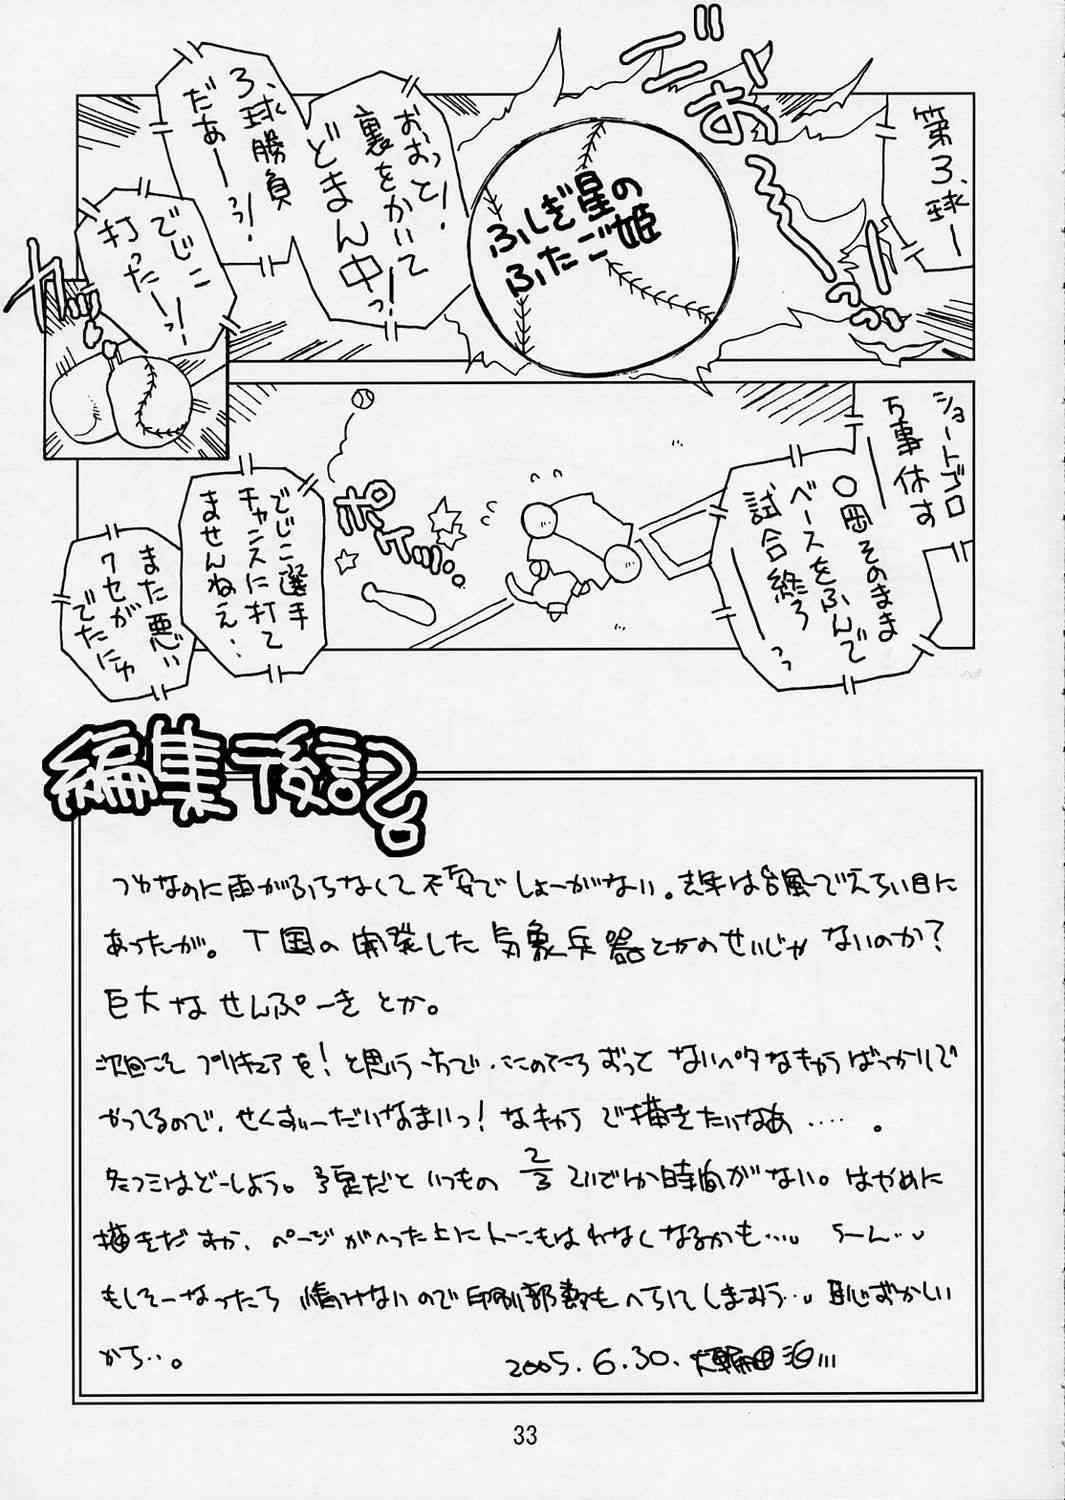 第3球ー
ゴォーーっっ
ふしぎ星の
ふたご姫
おおっと!
裏をかいて
どまん中っ!
3球勝負
だあーっっ!
でじこ
打ったーっ!
カッ
ショートゴロ
万事休す
〇岡そのまま
ベースをふんで
試合終了
ーっっ
ポイッ…
でじこ選手
チャンスに打て
ませんねえ‥
また悪い
クセが
でたにゅ
編集後記。
つゆなのに雨がふらなくて不安でしょーがない。去年は台風でえらい目に
あったが。T国の開発した気象兵器とかのせいじゃないのか?
巨大なせんぷーきとか。
次回こそプリキュアを!と思う一方で、ここのところずっとないペタなキャラばっかりで
やってるので、せくすぃーだいなまいっ!なキャラで描きたいなあ‥‥。
冬コミはどーしよう。予定だといつもの2/3くらいでか時間がない。はやめに
描きだすか、ページがへった上にトーンもはわなくなるかも…。うーん…。
もしそーなったら情けないので印刷部数もへらしてしまおう…。恥ずかしい
から…。
2005.6.30.大輪田泊
33